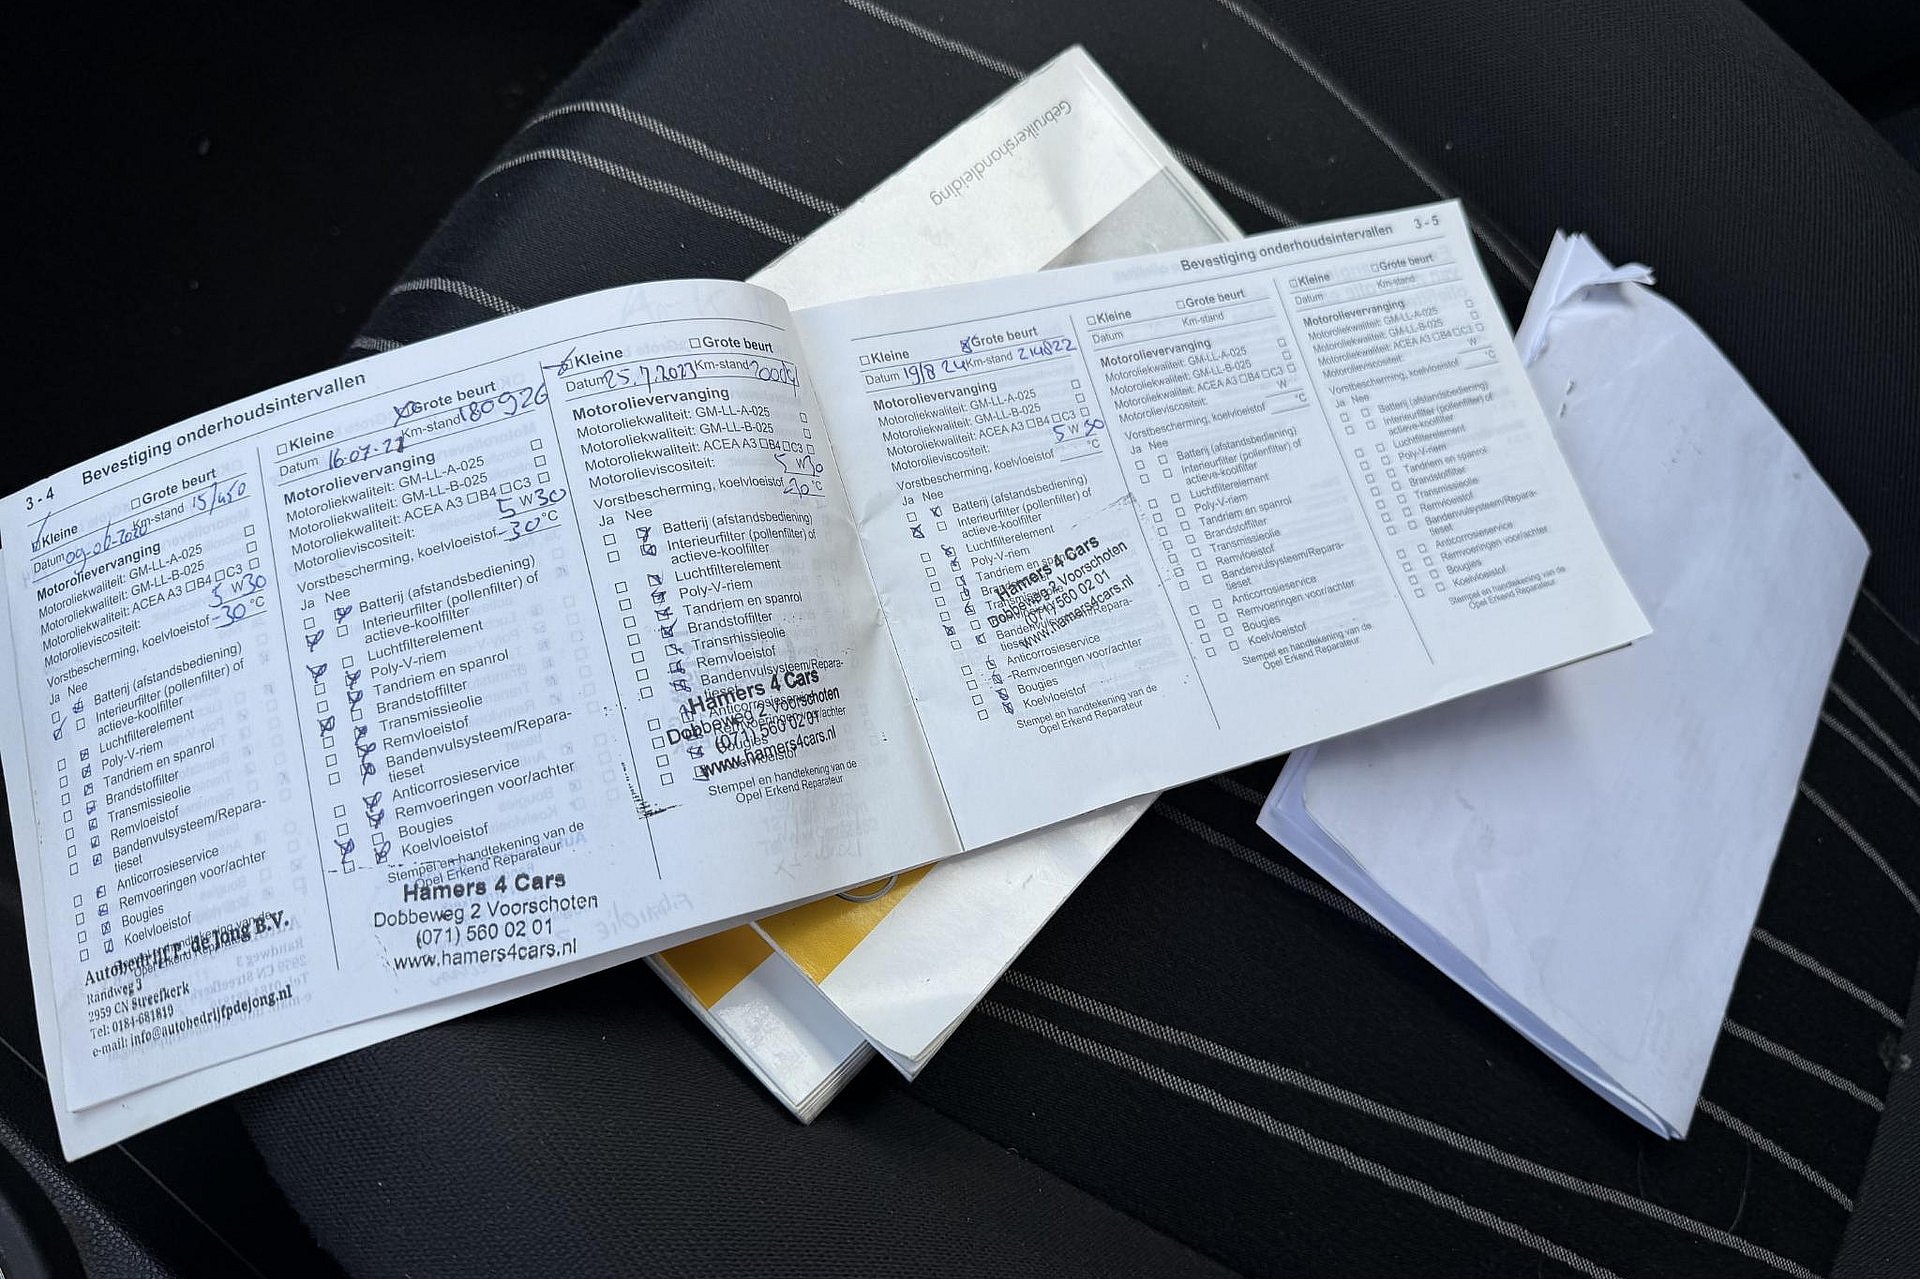 Gebruikershandleiding
3 - 4 Bevestiging onderhoudsintervallen
Kleine Grote beurt
Datum 09-06-2020 Km-stand 151450
Motorolievervanging
Motoroliekwaliteit: GM-LL-A-025
Motoroliekwaliteit: GM-LL-B-025
Motoroliekwaliteit: ACEA A3 B4 C3
Motorolieviscositeit: 5 W 30
Vorstbescherming, koelvloeistof -30 °C
Ja Nee
Batterij (afstandsbediening)
Interieurfilter (pollenfilter) of
actieve-koolfilter
Luchtfilterelement
Poly-V-riem
Tandriem en spanrol
Brandstoffilter
Transmissieolie
Remvloeistof
Bandenvulsysteem/Repara-
tieset
Anticorrosieservice
Remvoeringen voor/achter
Bougies
Koelvloeistof
Opel Erkend Reparateur
Autobedrijf P. de Jong B.V.
Randweg 3
2959 CN Streefkerk
Tel: 0184-681819
e-mail: info@autobedrijfpdejong.nl
Kleine Grote beurt
Datum 16-07-21 Km-stand 180926
Motorolievervanging
Motoroliekwaliteit: GM-LL-A-025
Motoroliekwaliteit: GM-LL-B-025
Motoroliekwaliteit: ACEA A3 B4 C3
Motorolieviscositeit: 5 W 30
Vorstbescherming, koelvloeistof -30 °C
Ja Nee
Batterij (afstandsbediening)
Interieurfilter (pollenfilter) of
actieve-koolfilter
Luchtfilterelement
Poly-V-riem
Tandriem en spanrol
Brandstoffilter
Transmissieolie
Remvloeistof
Bandenvulsysteem/Repara-
tieset
Anticorrosieservice
Remvoeringen voor/achter
Bougies
Koelvloeistof
Stempel en handtekening van de
Opel Erkend Reparateur
Hamers 4 Cars
Dobbeweg 2 Voorschoten
(071) 560 02 01
www.hamers4cars.nl
Kleine Grote beurt
Datum 25.7.2023 Km-stand
Motorolievervanging
Motoroliekwaliteit: GM-LL-A-025
Motoroliekwaliteit: GM-LL-B-025
Motoroliekwaliteit: ACEA A3 B4 C3
Motorolieviscositeit: 5 W 30
Vorstbescherming, koelvloeistof °C
Ja Nee
Batterij (afstandsbediening)
Interieurfilter (pollenfilter) of
actieve-koolfilter
Luchtfilterelement
Poly-V-riem
Tandriem en spanrol
Brandstoffilter
Transmissieolie
Remvloeistof
Bandenvulsysteem/Repara-
tieset
Anticorrosieservice
Remvoeringen voor/achter
Bougies
Koelvloeistof
Hamers 4 Cars
Dobbeweg 2 Voorschoten
(071) 560 02 01
www.hamers4cars.nl
Stempel en handtekening van de
Opel Erkend Reparateur
Bevestiging onderhoudsintervallen 3 - 5
Kleine Grote beurt
Datum 19/8 24 Km-stand 214822
Motorolievervanging
Motoroliekwaliteit: GM-LL-A-025
Motoroliekwaliteit: GM-LL-B-025
Motoroliekwaliteit: ACEA A3 B4 C3
Motorolieviscositeit: 5 W 30
Vorstbescherming, koelvloeistof °C
Ja Nee
Batterij (afstandsbediening)
Interieurfilter (pollenfilter) of
actieve-koolfilter
Luchtfilterelement
Poly-V-riem
Tandriem en
Anticorrosieservice
Remvoeringen voor/achter
Bougies
Koelvloeistof
Hamers 4 Cars
Dobbeweg 2 Voorschoten
(071) 560 02 01
www.hamers4cars.nl
Stempel en handtekening van de
Opel Erkend Reparateur
Kleine Grote beurt
Datum Km-stand
Motorolievervanging
Motoroliekwaliteit: GM-LL-A-025
Motoroliekwaliteit: GM-LL-B-025
Motoroliekwaliteit: ACEA A3 B4 C3
Motorolieviscositeit: W
Vorstbescherming, koelvloeistof °C
Ja Nee
Batterij (afstandsbediening)
Interieurfilter (pollenfilter) of
actieve-koolfilter
Luchtfilterelement
Poly-V-riem
Tandriem en spanrol
Brandstoffilter
Transmissieolie
Remvloeistof
Bandenvulsysteem/Repara-
tieset
Anticorrosieservice
Remvoeringen voor/achter
Bougies
Koelvloeistof
Stempel en handtekening van de
Opel Erkend Reparateur
Kleine Grote beurt
Datum Km-stand
Motorolievervanging
Motoroliekwaliteit: GM-LL-A-025
Motoroliekwaliteit: GM-LL-B-025
Motoroliekwaliteit: ACEA A3 B4 C3
Motorolieviscositeit: W
Vorstbescherming, koelvloeistof °C
Ja Nee
Batterij (afstandsbediening)
Interieurfilter (pollenfilter) of
actieve-koolfilter
Luchtfilterelement
Poly-V-riem
Tandriem en spanrol
Brandstoffilter
Transmissieolie
Remvloeistof
Bandenvulsysteem/Repara-
tieset
Anticorrosieservice
Remvoeringen voor/achter
Bougies
Koelvloeistof
Stempel en handtekening van de
Opel Erkend Reparateur